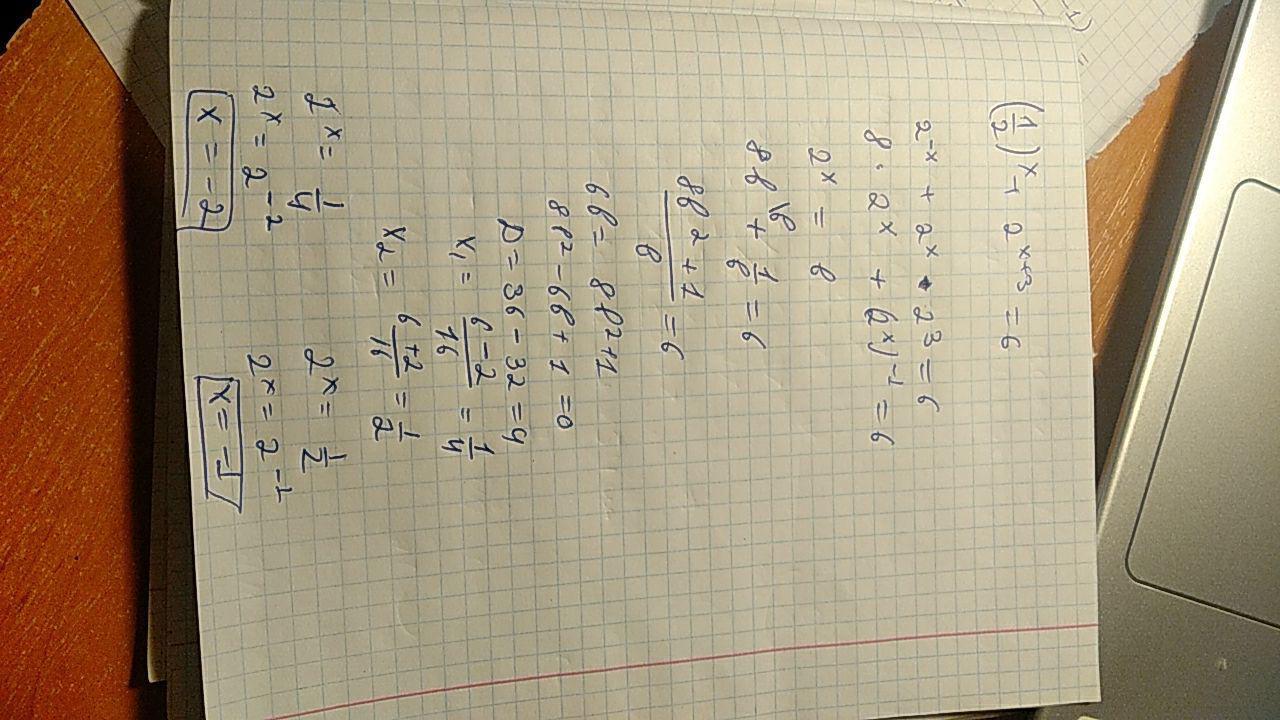 (1/2)^x + 2^(x+3) = 6
2^-x + 2^x · 2^3 = 6
8 · 2^x + (2^x)^-1 = 6
2^x = b
8b^\b + 1/b = 6
(8b^2 + 1)/b = 6
6b = 8b^2 + 1
8b^2 - 6b + 1 = 0
D = 36 - 32 = 4
x₁ = (6-2)/16 = 1/4
x₂ = (6+2)/16 = 1/2
2^x = 1/4 2^x = 1/2
2^x = 2^-2 2^x = 2^-1
x = -2 x = -1